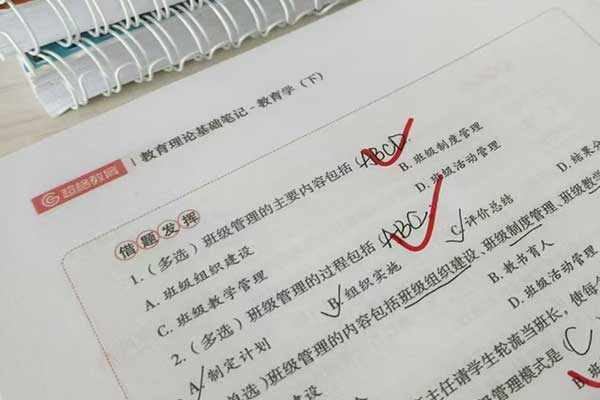 教育理论基础笔记-教育学(下)
超格教育
借题发挥
1.(多选)班级管理的主要内容包括 ABCD.
A.班级组织建设
B.班级制度管理
C.班级教学管理
D.班级活动管理
2.(多选)班级管理的过程包括 ABC.
A.制定计划
B.组织实施
C.评价总结
D.结果分
选)班级管理的内容包括班级组织建设、班级制度管理、班级教学
建设
B.教书育人
D.班级活动管理
主任请学生轮流当班长,使每个
级管理模式是 C
B.班